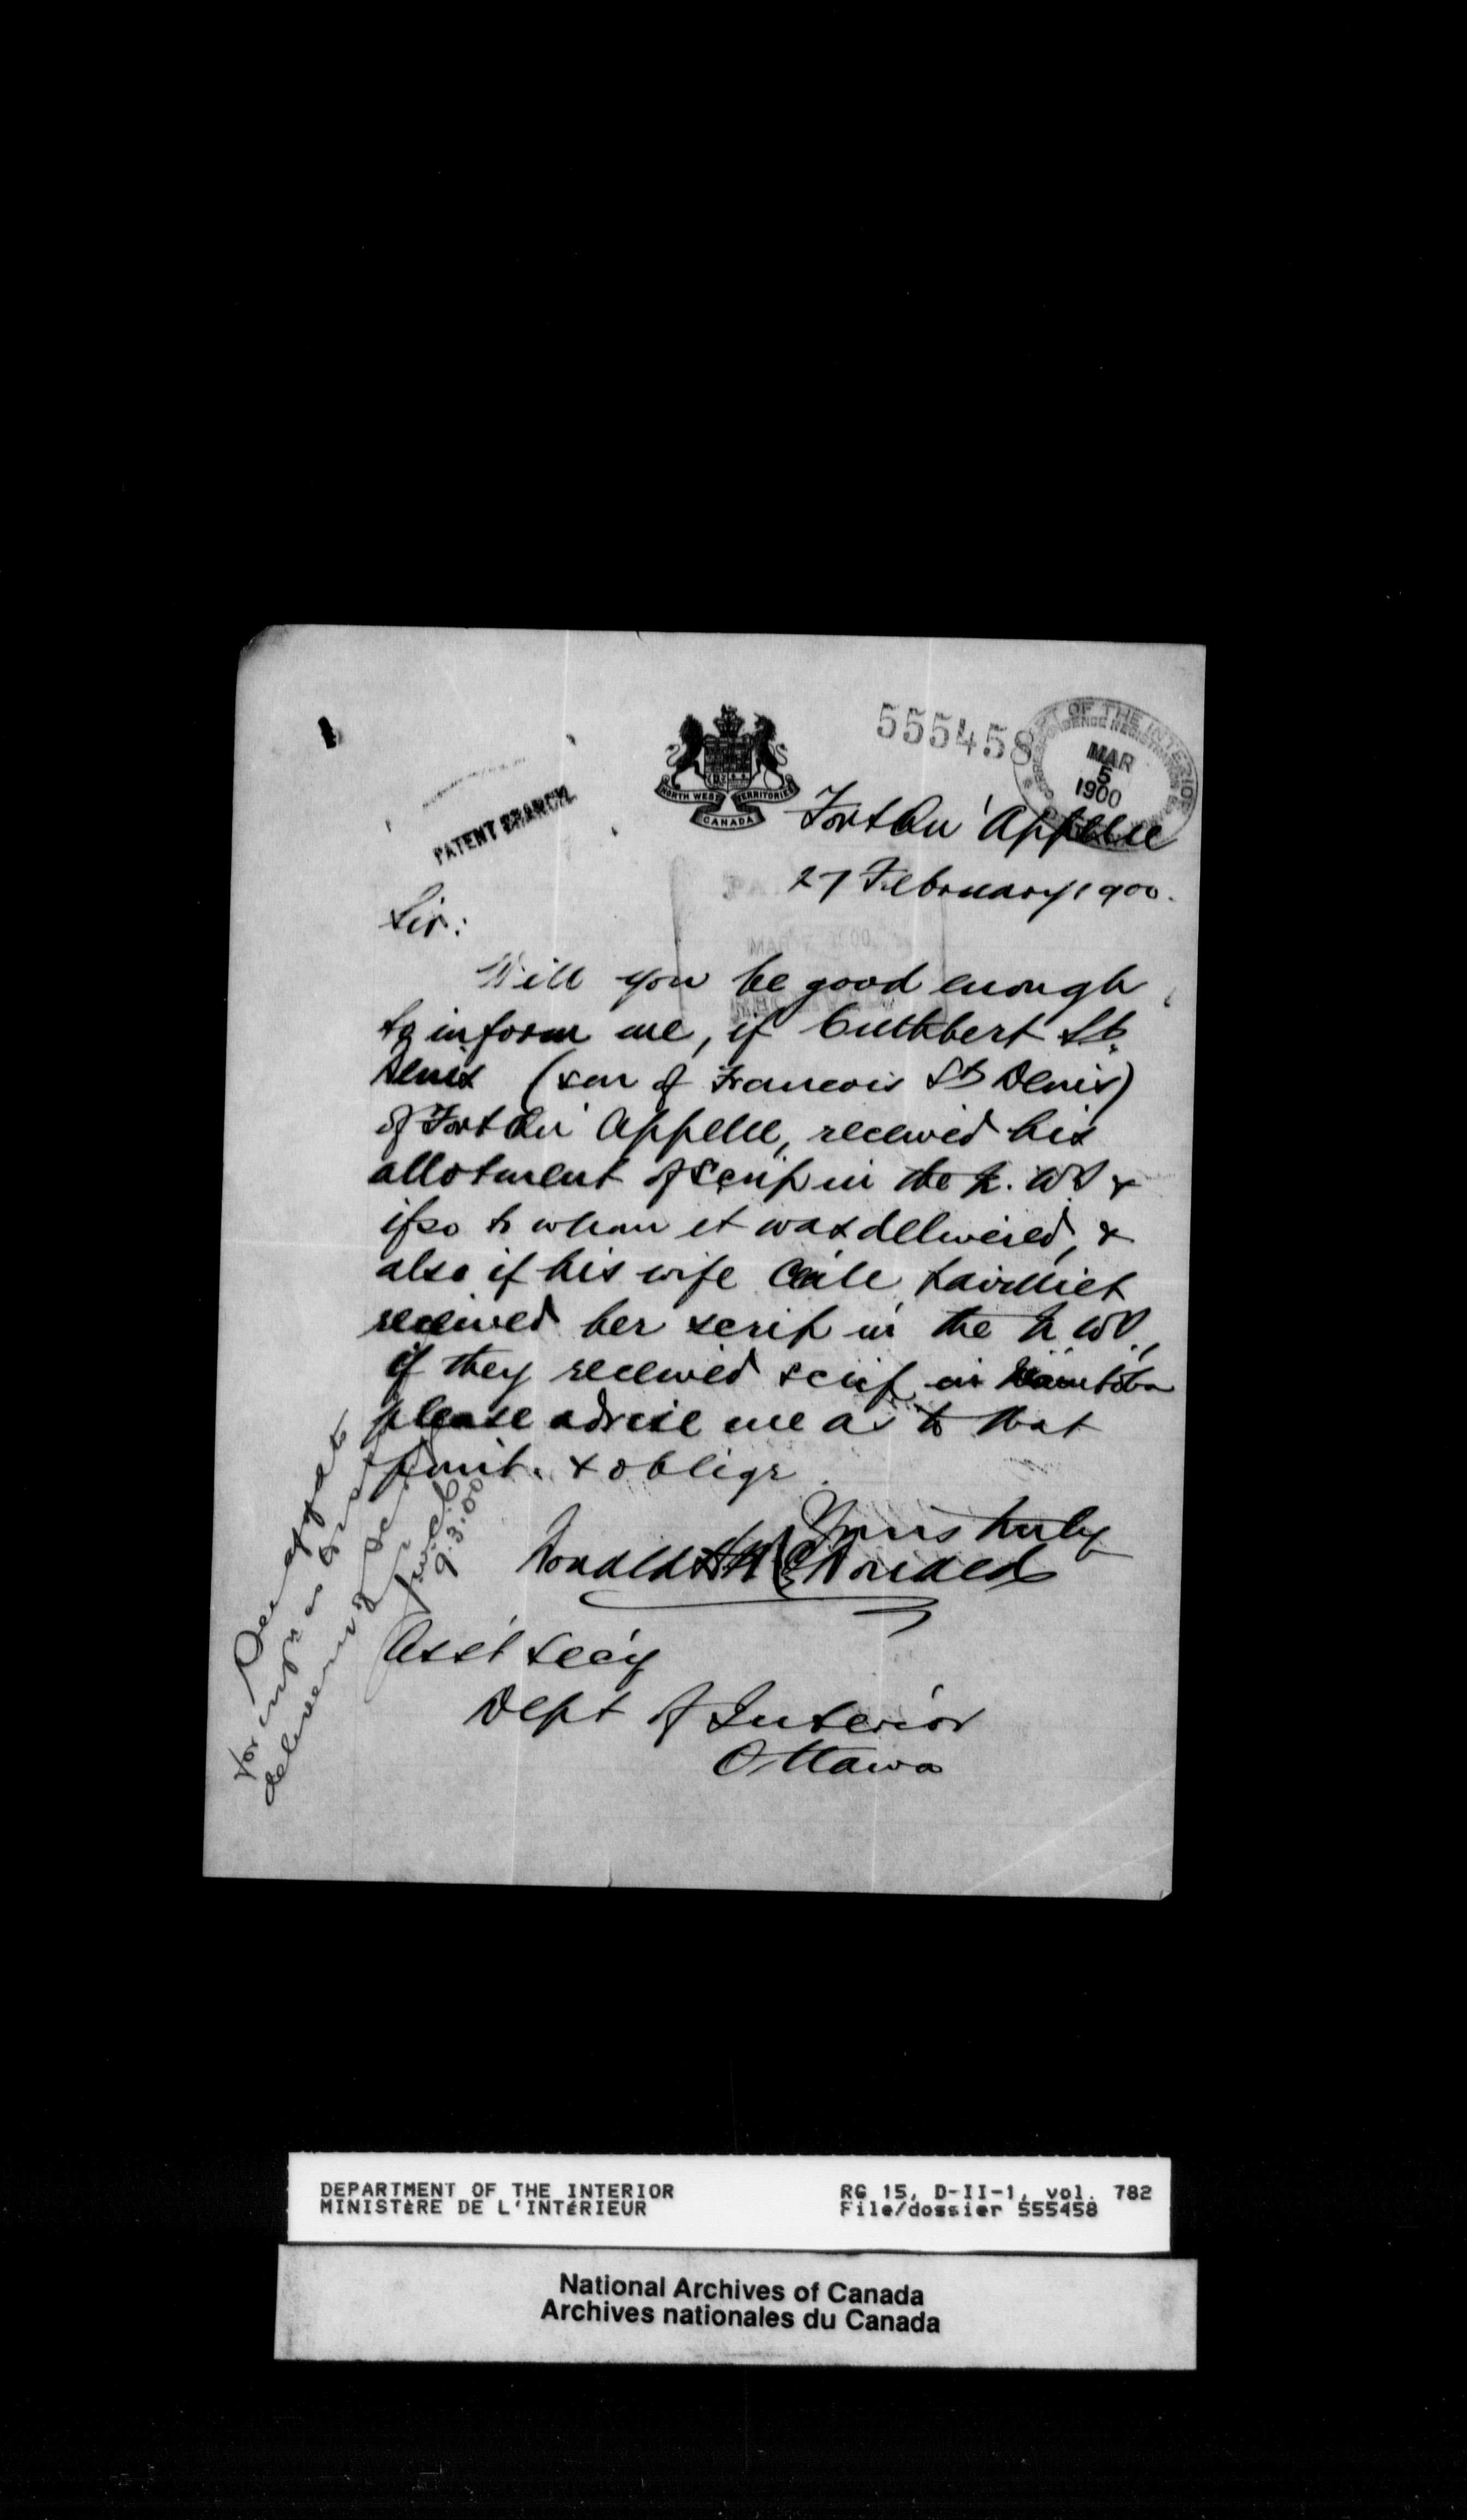 555458
DEPT OF THE INTERIOR
MAR
5
1900
NORTH WEST TERRITORIES
CANADA
PATENT BRANCH.
Fort Qu'Appelle
27 February 1900.
Sir:
Will you be good enough
to inform me, if Cuthbert St.
Denis (son of Francois St Denis)
of Fort Qu'Appelle, received his
allotment of scrip in the N. W T &
if so to whom it was delivered, &
also if his wife
received her scrip in the N W T,
if they received scrip in Manitoba
please advise me as to that
point. & oblige
Yours truly
Donald H McDonald
Asst Secy
Dept of Interior
Ottawa
for
delivery of
9.3.00
DEPARTMENT OF THE INTERIOR
MINISTÈRE DE L'INTÉRIEUR
RG 15, D-II-1, vol. 782
File/dossier 555458
National Archives of Canada
Archives nationales du Canada